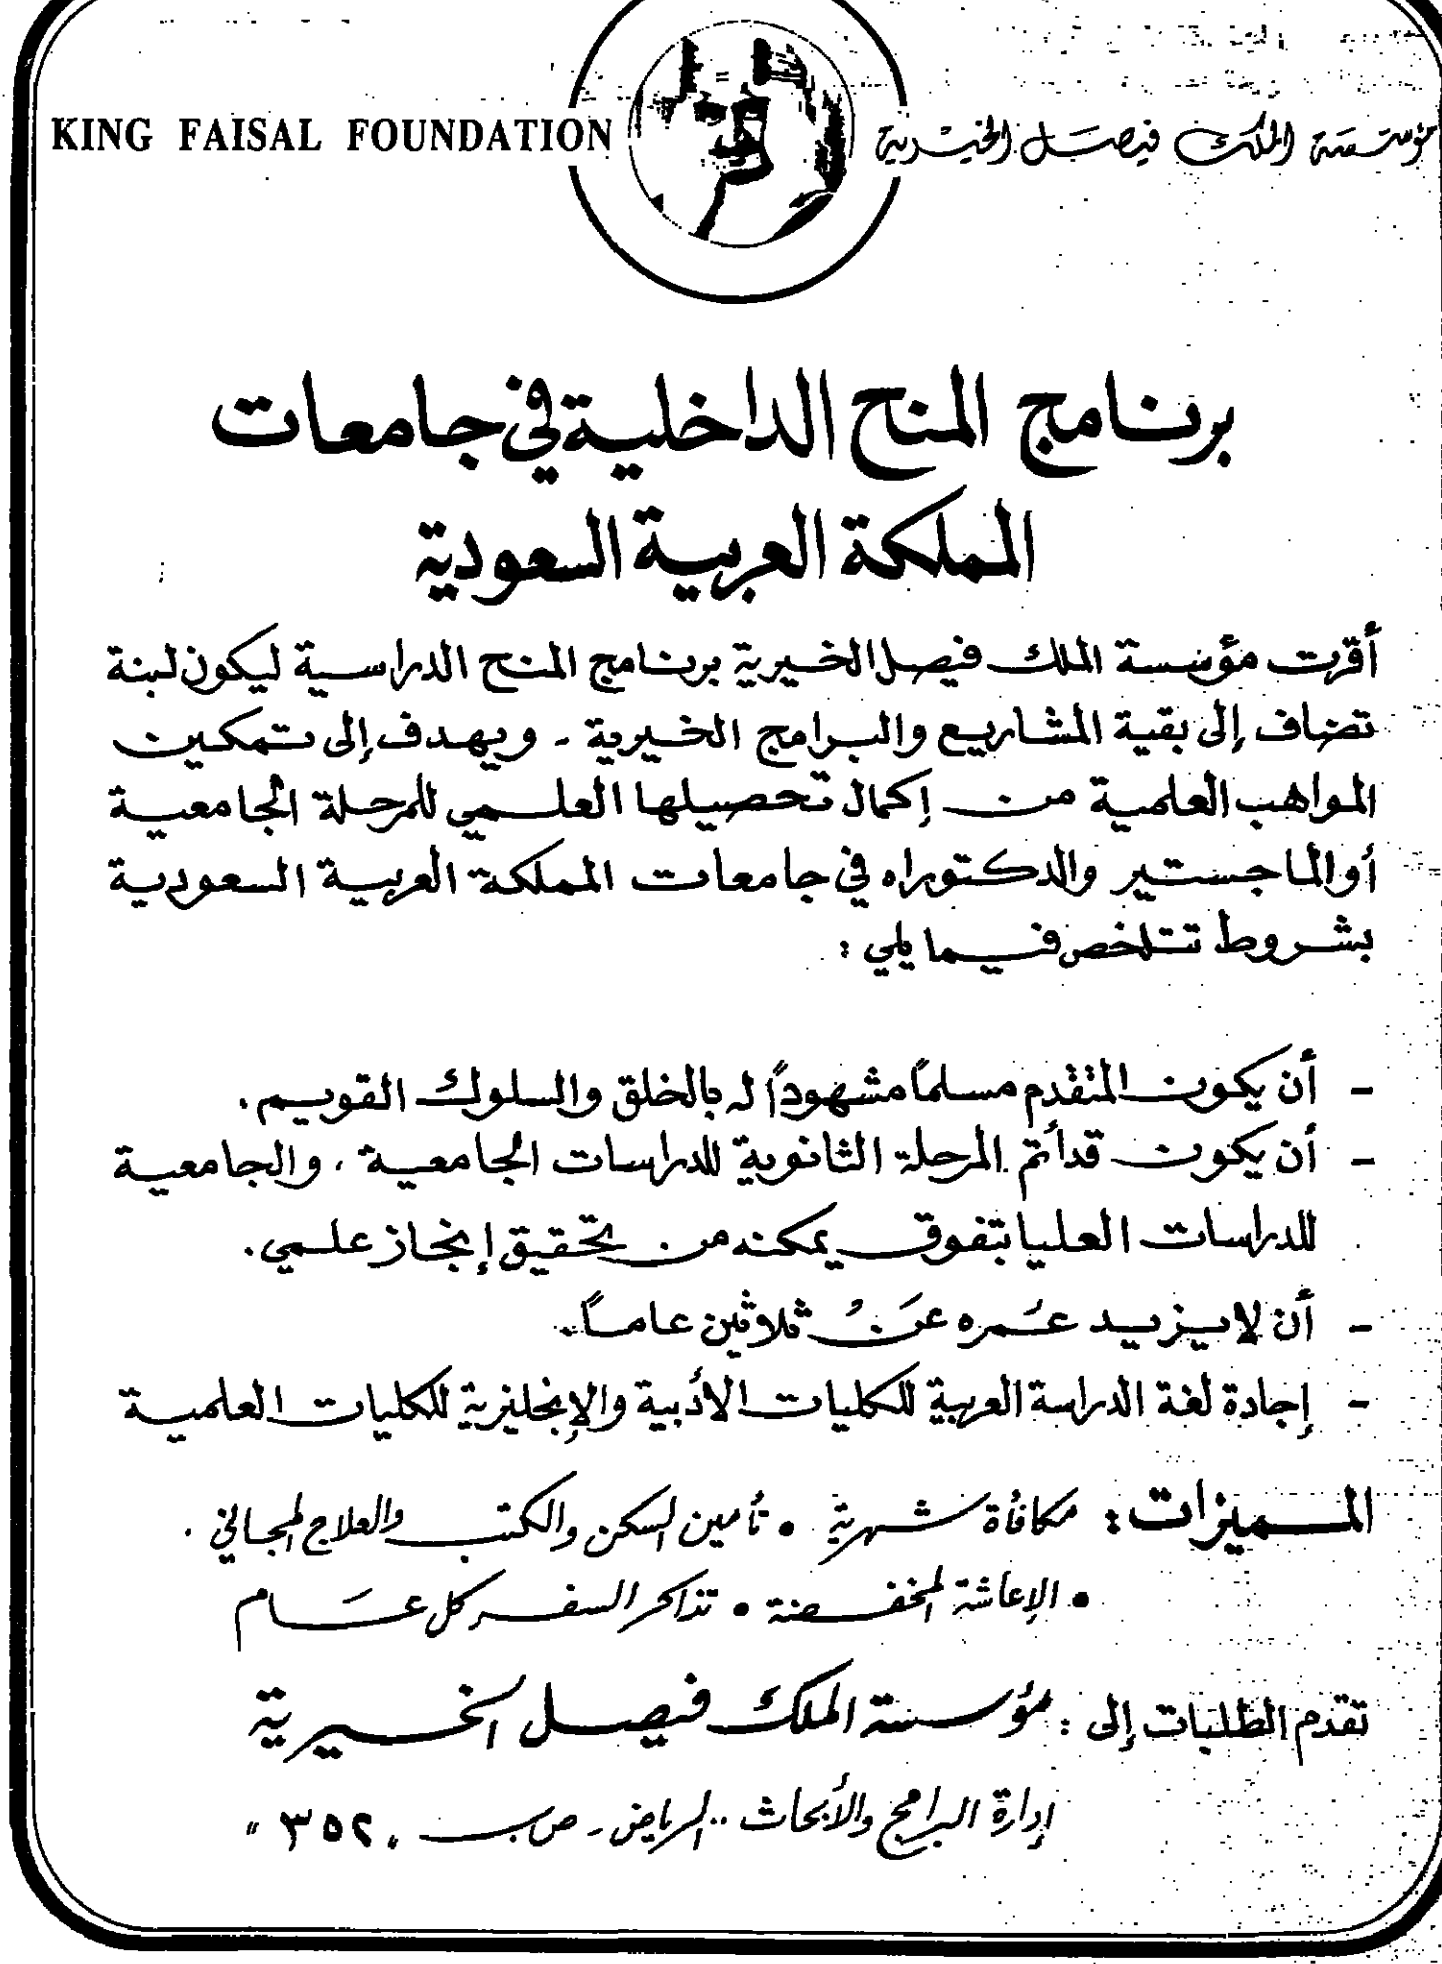 KING FAISAL FOUNDATION
مؤسسة الملك فيصل الخيرية
برنامج المنح الداخلية في جامعات
المملكة العربية السعودية
أقرت مؤسسة الملك فيصل الخيرية برنامج المنح الدراسية ليكون لبنة
تضاف إلى بقية المشاريع والبرامج الخيرية - ويهدف إلى تمكين
المواهب العلمية من إكمال تحصيلها العلمي للمرحلة الجامعية
أو الماجستير والدكتوراه في جامعات المملكة العربية السعودية
بشروط تتلخص فيما يلي :
- أن يكون المتقدم مسلماً مشهوداً له بالخلق والسلوك القويم .
- أن يكون قد أتم المرحلة الثانوية للدراسات الجامعية ، والجامعية
للدراسات العليا بتفوق يمكنه من تحقيق إنجاز علمي .
- أن لا يزيد عُمره عَنْ ثلاثين عاماً .
- إجادة لغة الدراسة العربية للكليات الأدبية والإنجليزية للكليات العلمية
المميزات : مكافأة شهرية • تأمين السكن والكتب والعلاج المجاني .
• الإعاشة المخفضة • تذاكر السفر كل عَام
تقدم الطلبات إلى : مؤسسة الملك فيصل الخيرية
إدارة البرامج والأبحاث .. الرياض - ص ب " ٣٥٢ "